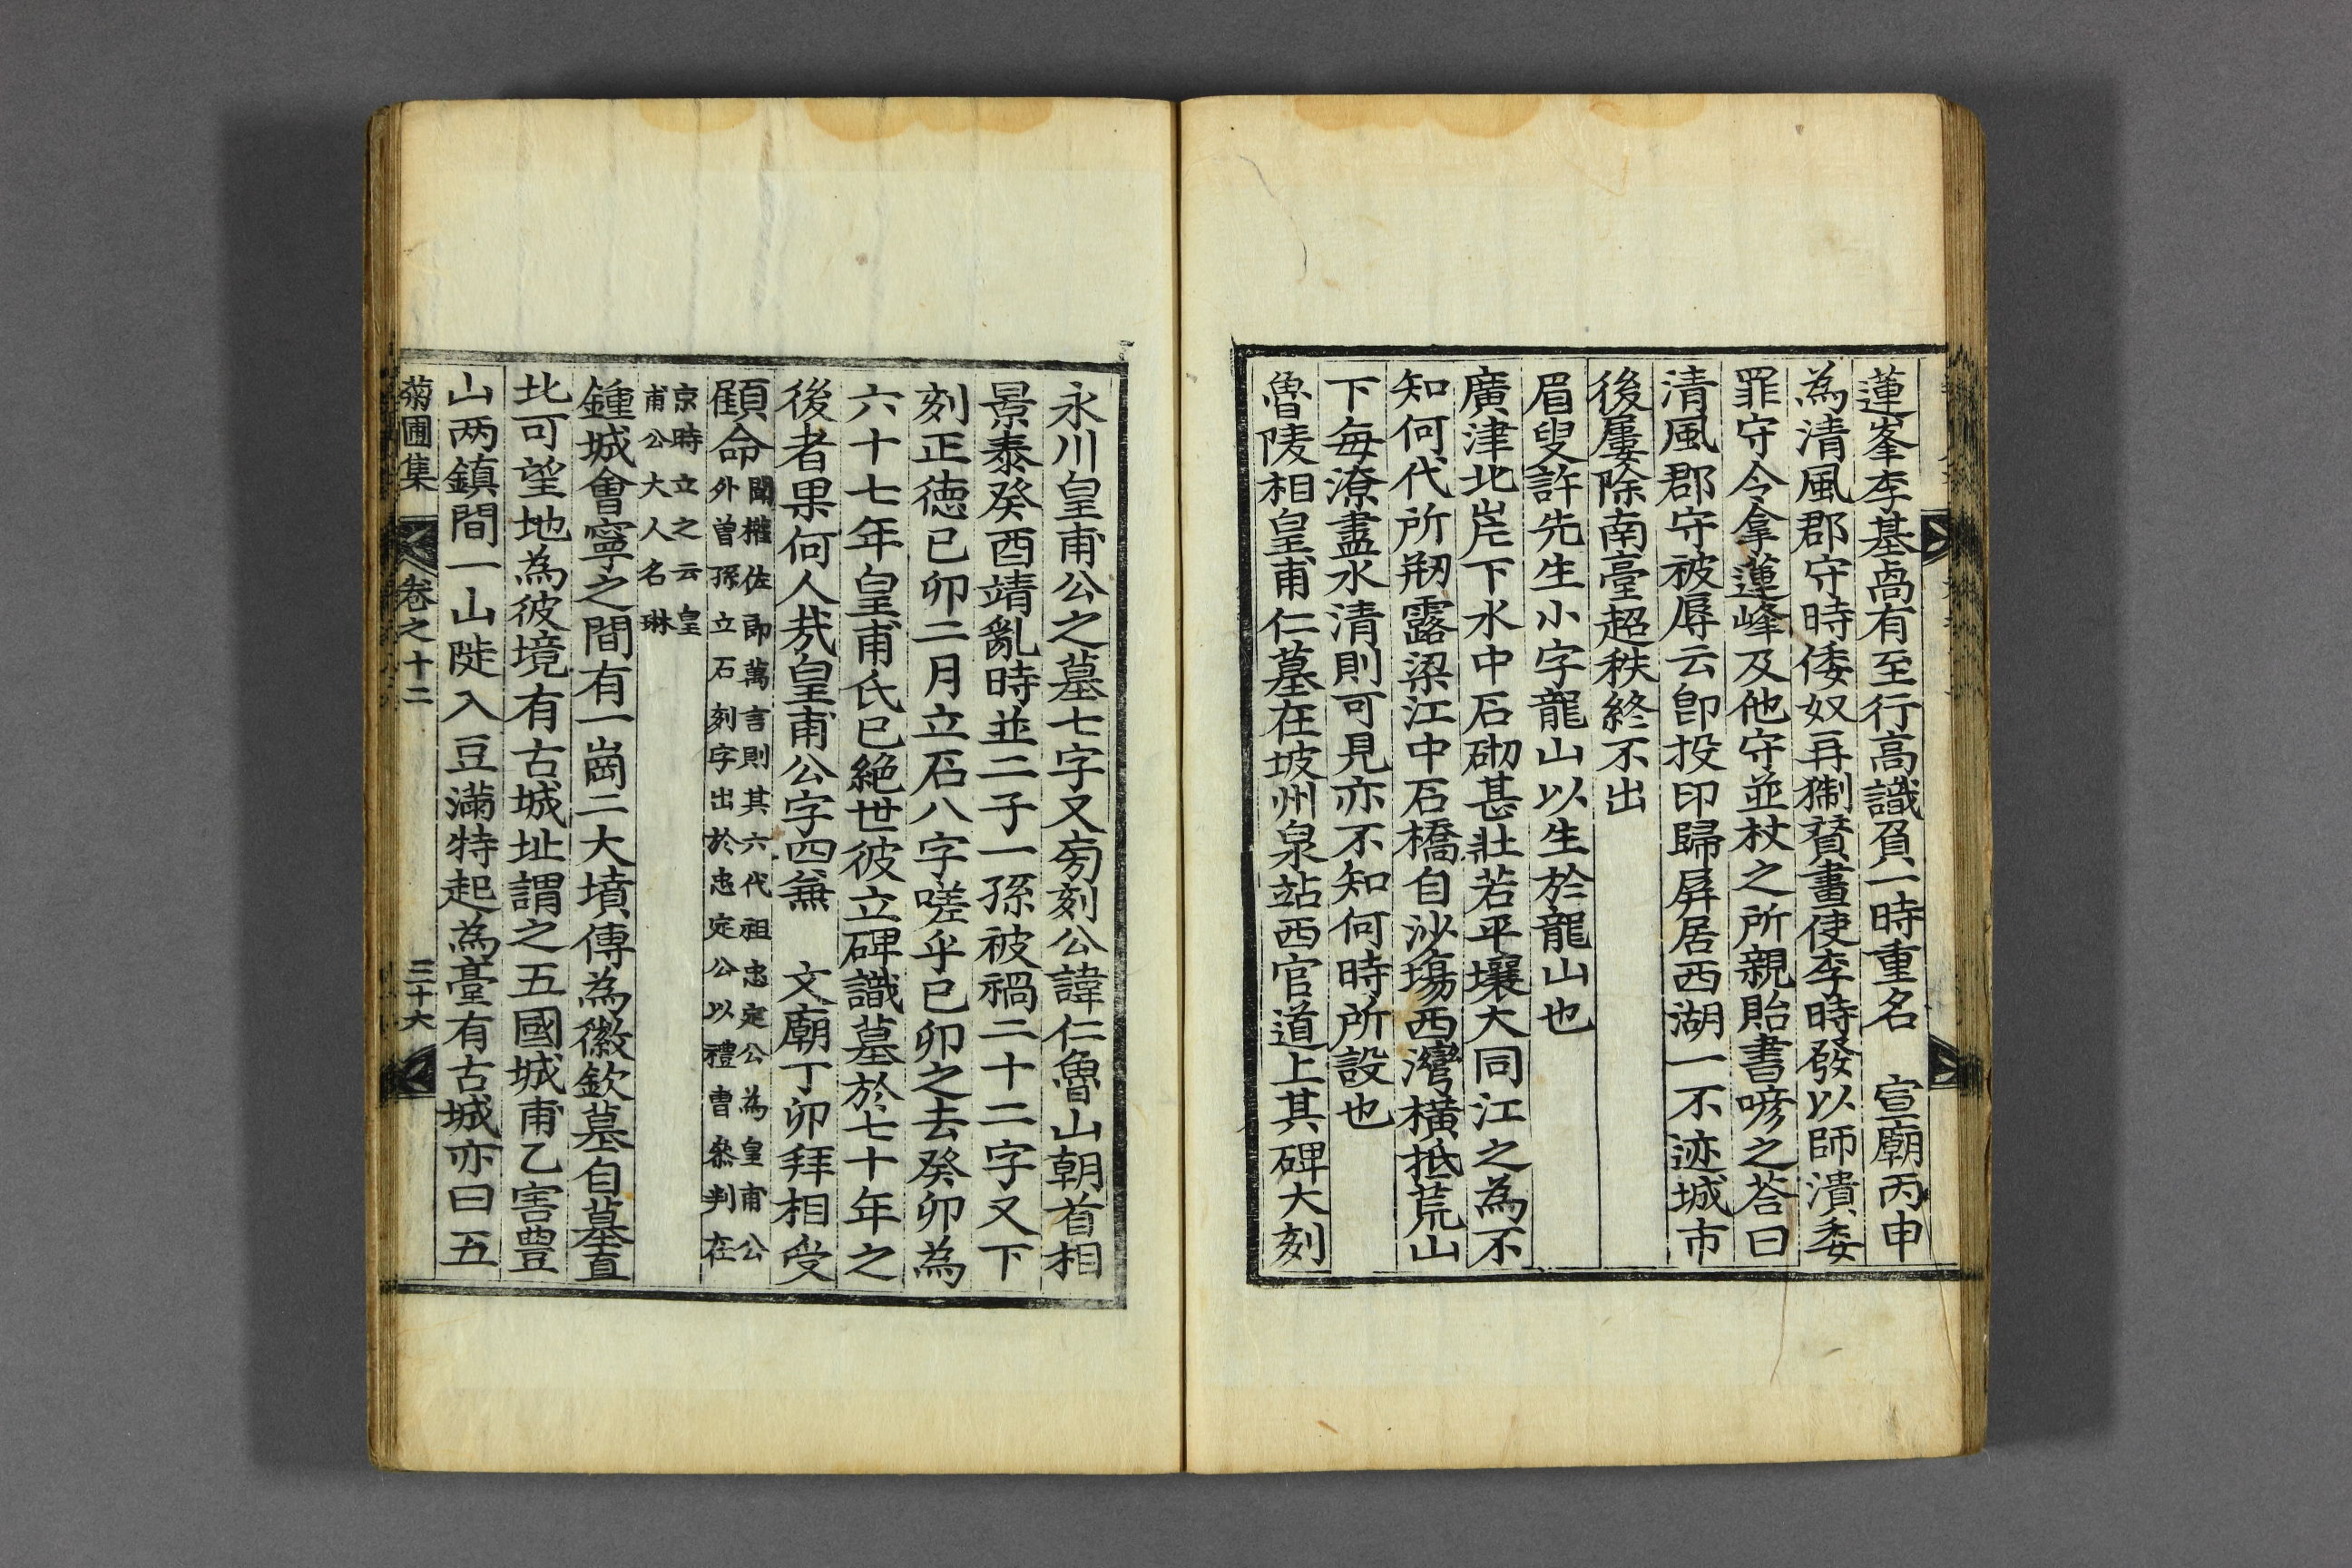 蓮峯李基卨有至行高識負一時重名　宣廟丙申
為淸風郡守時倭奴再猘賛畫使李時發以師潰委
罪守令拿蓮峰及他守並杖之所親貽書唁之荅曰
淸風郡守被辱云卽投印歸屛居西湖一不迹城市
後屢除南臺超秩終不出
眉叟許先生小字龍山以生於龍山也
廣津北岸下水中石砌甚壯若平壤大同江之為不
知何代所剏露梁江中石橋自沙塲西灣橫抵荒山
下每潦盡水淸則可見亦不知何時所設也
魯陵相皇甫仁墓在坡州泉站西官道上其碑大刻
永川皇甫公之墓七字又旁刻公諱仁魯山朝首相
景泰癸酉靖亂時並二子一孫被禍二十二字又下
刻正德已卯二月立石八字嗟乎已卯之去癸卯為
六十七年皇甫氏已絶世彼立碑識墓於七十年之
後者果何人㦲皇甫公字四兼　文廟丁卯拜相受
顧命聞權佐郞萬言則其六代祖忠定公為皇甫公
外曾孫立石刻字出於忠定公以禮曹叅判在
京時立之云皇
甫公大人名琳
鍾城會寧之間有一崗二大墳傳為徽欽墓自墓直
北可望地為彼境有古城址謂之五國城甫乙害豊
山两鎮間一山陡入豆滿特起為臺有古城亦曰五
菊圃集　卷之十二　三十六